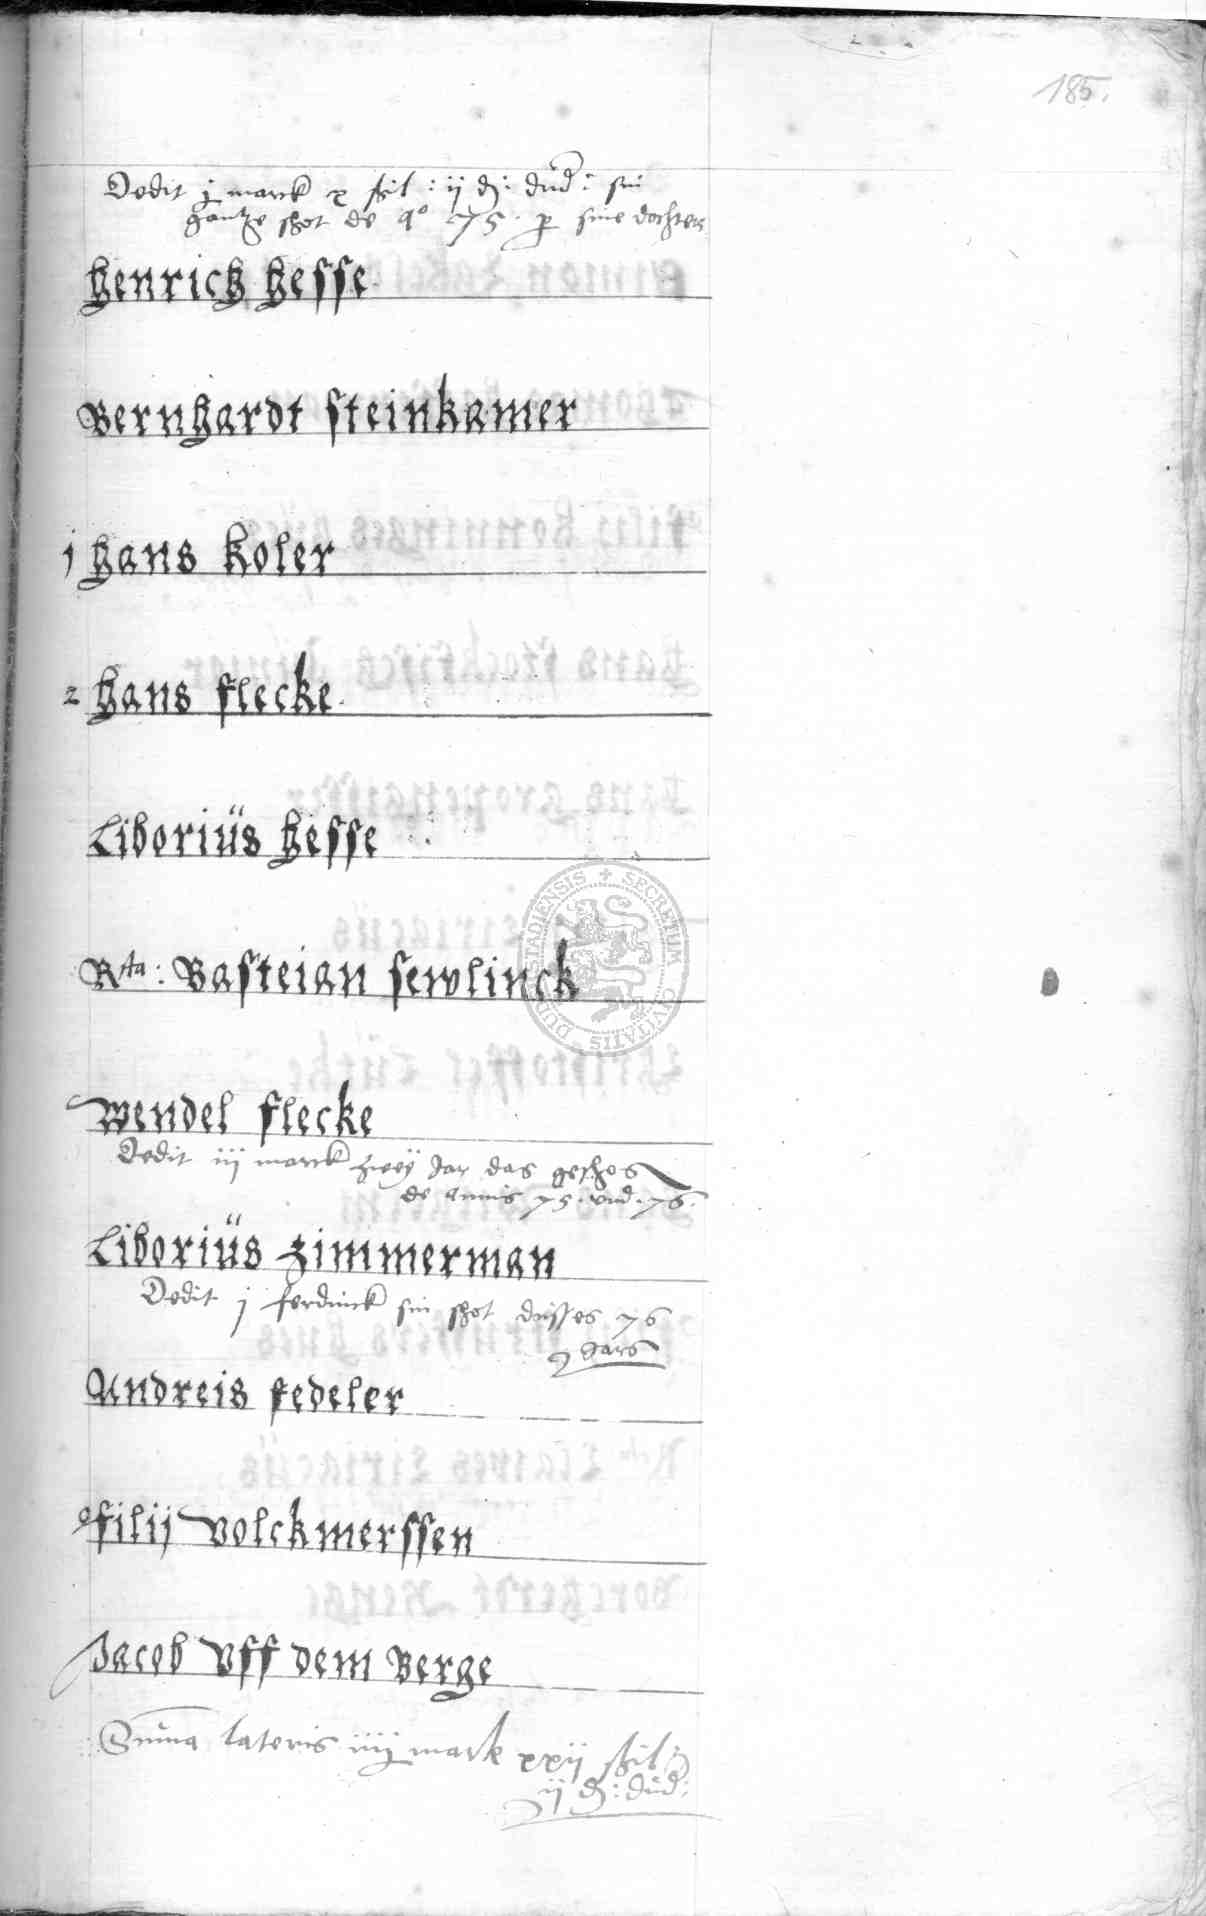 185.
Dedit j marck x ßil : ij d : dud : sin
gantze schot de ao 75. p sine dochter
Henrich Hesse
Bernhardt steinkamer
j Hans Koler
2 Hans flecke
Liborius Hesse
Rta : Basteian sewlinck
Wendel flecke
Dedit iij marck zwey Jar das geschos
de annis 75. und. 76.
Liborius Zimmerman
Dedit j ferdinck sin schot disses 76
Jars
Andreis fedeler
filij Volckmerssen
Jacob Uff dem Berge
Suma lateris iiij mark xxij ßil
ij d : dud :
SECRETUM CIVITATIS DUDERSTADIENSIS